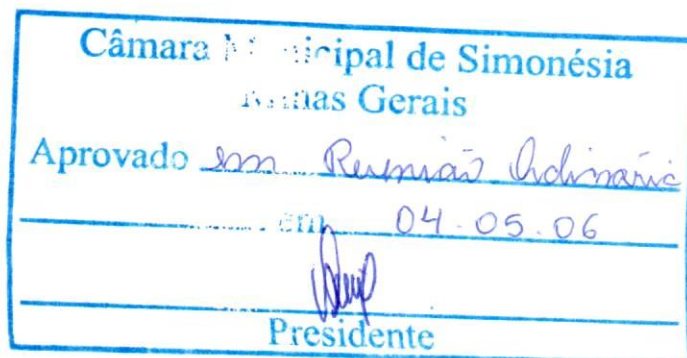 Câmara Municipal de Simonésia
Minas Gerais
Aprovado em Reunião Ordinária
em 04.05.06
Presidente